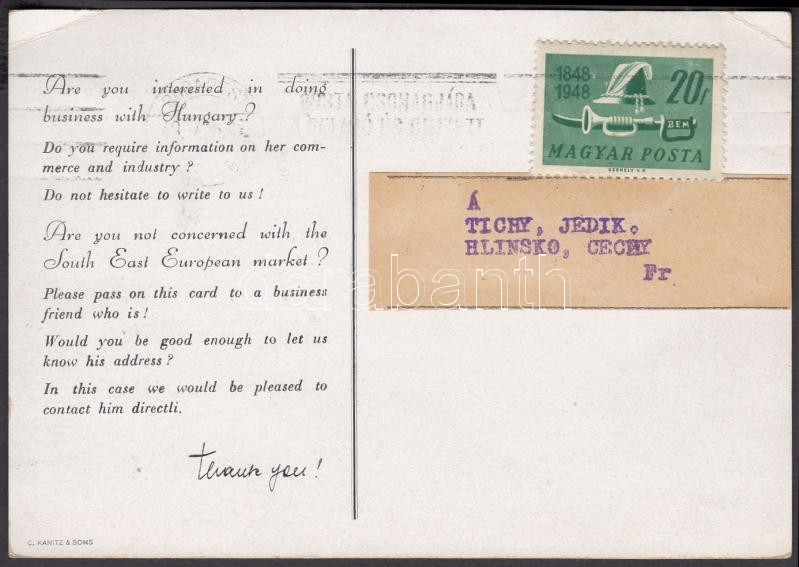 Are you interested in doing
business with Hungary?
Do you require information on her com-
merce and industry ?
Do not hesitate to write to us !
Are you not concerned with the
South East European market ?
Please pass on this card to a business
friend who is !
Would you be good enough to let us
know his address ?
In this case we would be pleased to
contact him directli.
Thank you!
C. KANITZ & SONS
1848
1948
20f
BEM
MAGYAR POSTA
SZÉKELY V. R.
Á
TICHY, JEDIK.
HLINSKO, CECHY
Fr
darabanth